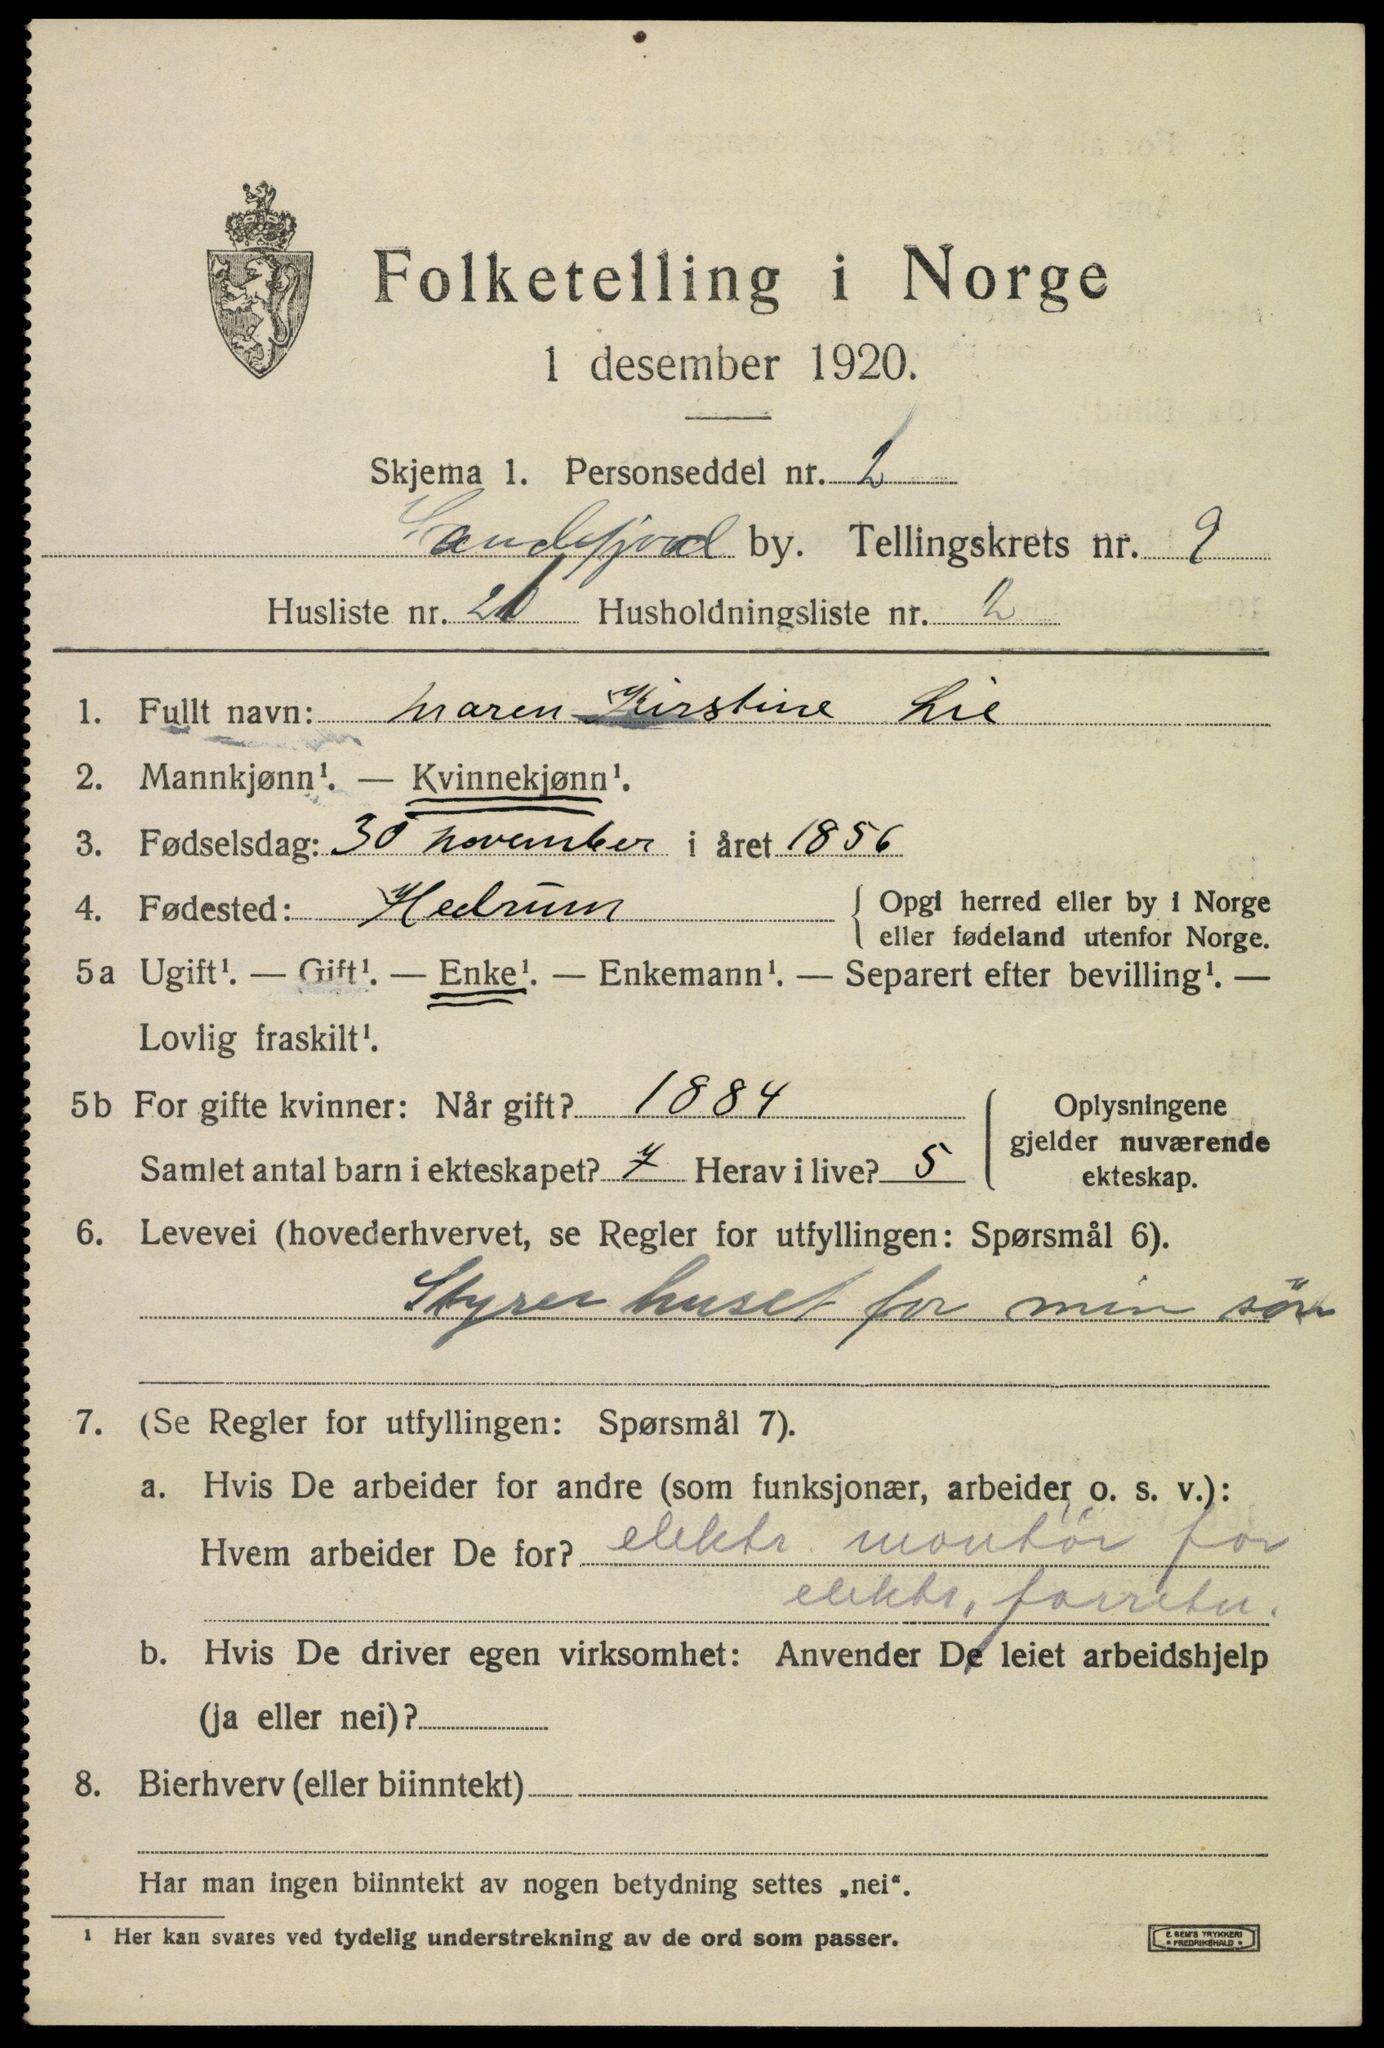 Folketelling i Norge
1 desember 1920.
Skjema 1. Personseddel nr. 2
Sandefjord by. Tellingskrets nr. 9
Husliste nr. 20 Husholdningsliste nr. 2
1. Fullt navn: Maren Kirstine Lie
2. Mannkjønn¹. — Kvinnekjønn¹.
3. Fødselsdag: 30 november i året 1856
4. Fødested: Hedrum { Opgi herred eller by i Norge
eller fødeland utenfor Norge.
5a Ugift¹. — Gift¹. — Enke¹. — Enkemann¹. — Separert efter bevilling¹. —
Lovlig fraskilt¹.
5b For gifte kvinner: Når gift? 1884
Samlet antal barn i ekteskapet? 7 Herav i live? 5
Oplysningene
gjelder nuværende
ekteskap.
6. Levevei (hovederhvervet, se Regler for utfyllingen: Spørsmål 6).
Styrer huset for min sön
7. (Se Regler for utfyllingen: Spørsmål 7).
a. Hvis De arbeider for andre (som funksjonær, arbeider o. s. v.):
Hvem arbeider De for? elektr. montør for
elektr. forretn.
b. Hvis De driver egen virksomhet: Anvender De leiet arbeidshjelp
(ja eller nei)?
8. Bierhverv (eller biinntekt)
Har man ingen biinntekt av nogen betydning settes „nei“.
¹ Her kan svares ved tydelig understrekning av de ord som passer.
E. SEM'S TRYKKERI
• FREDRIKSHALD •